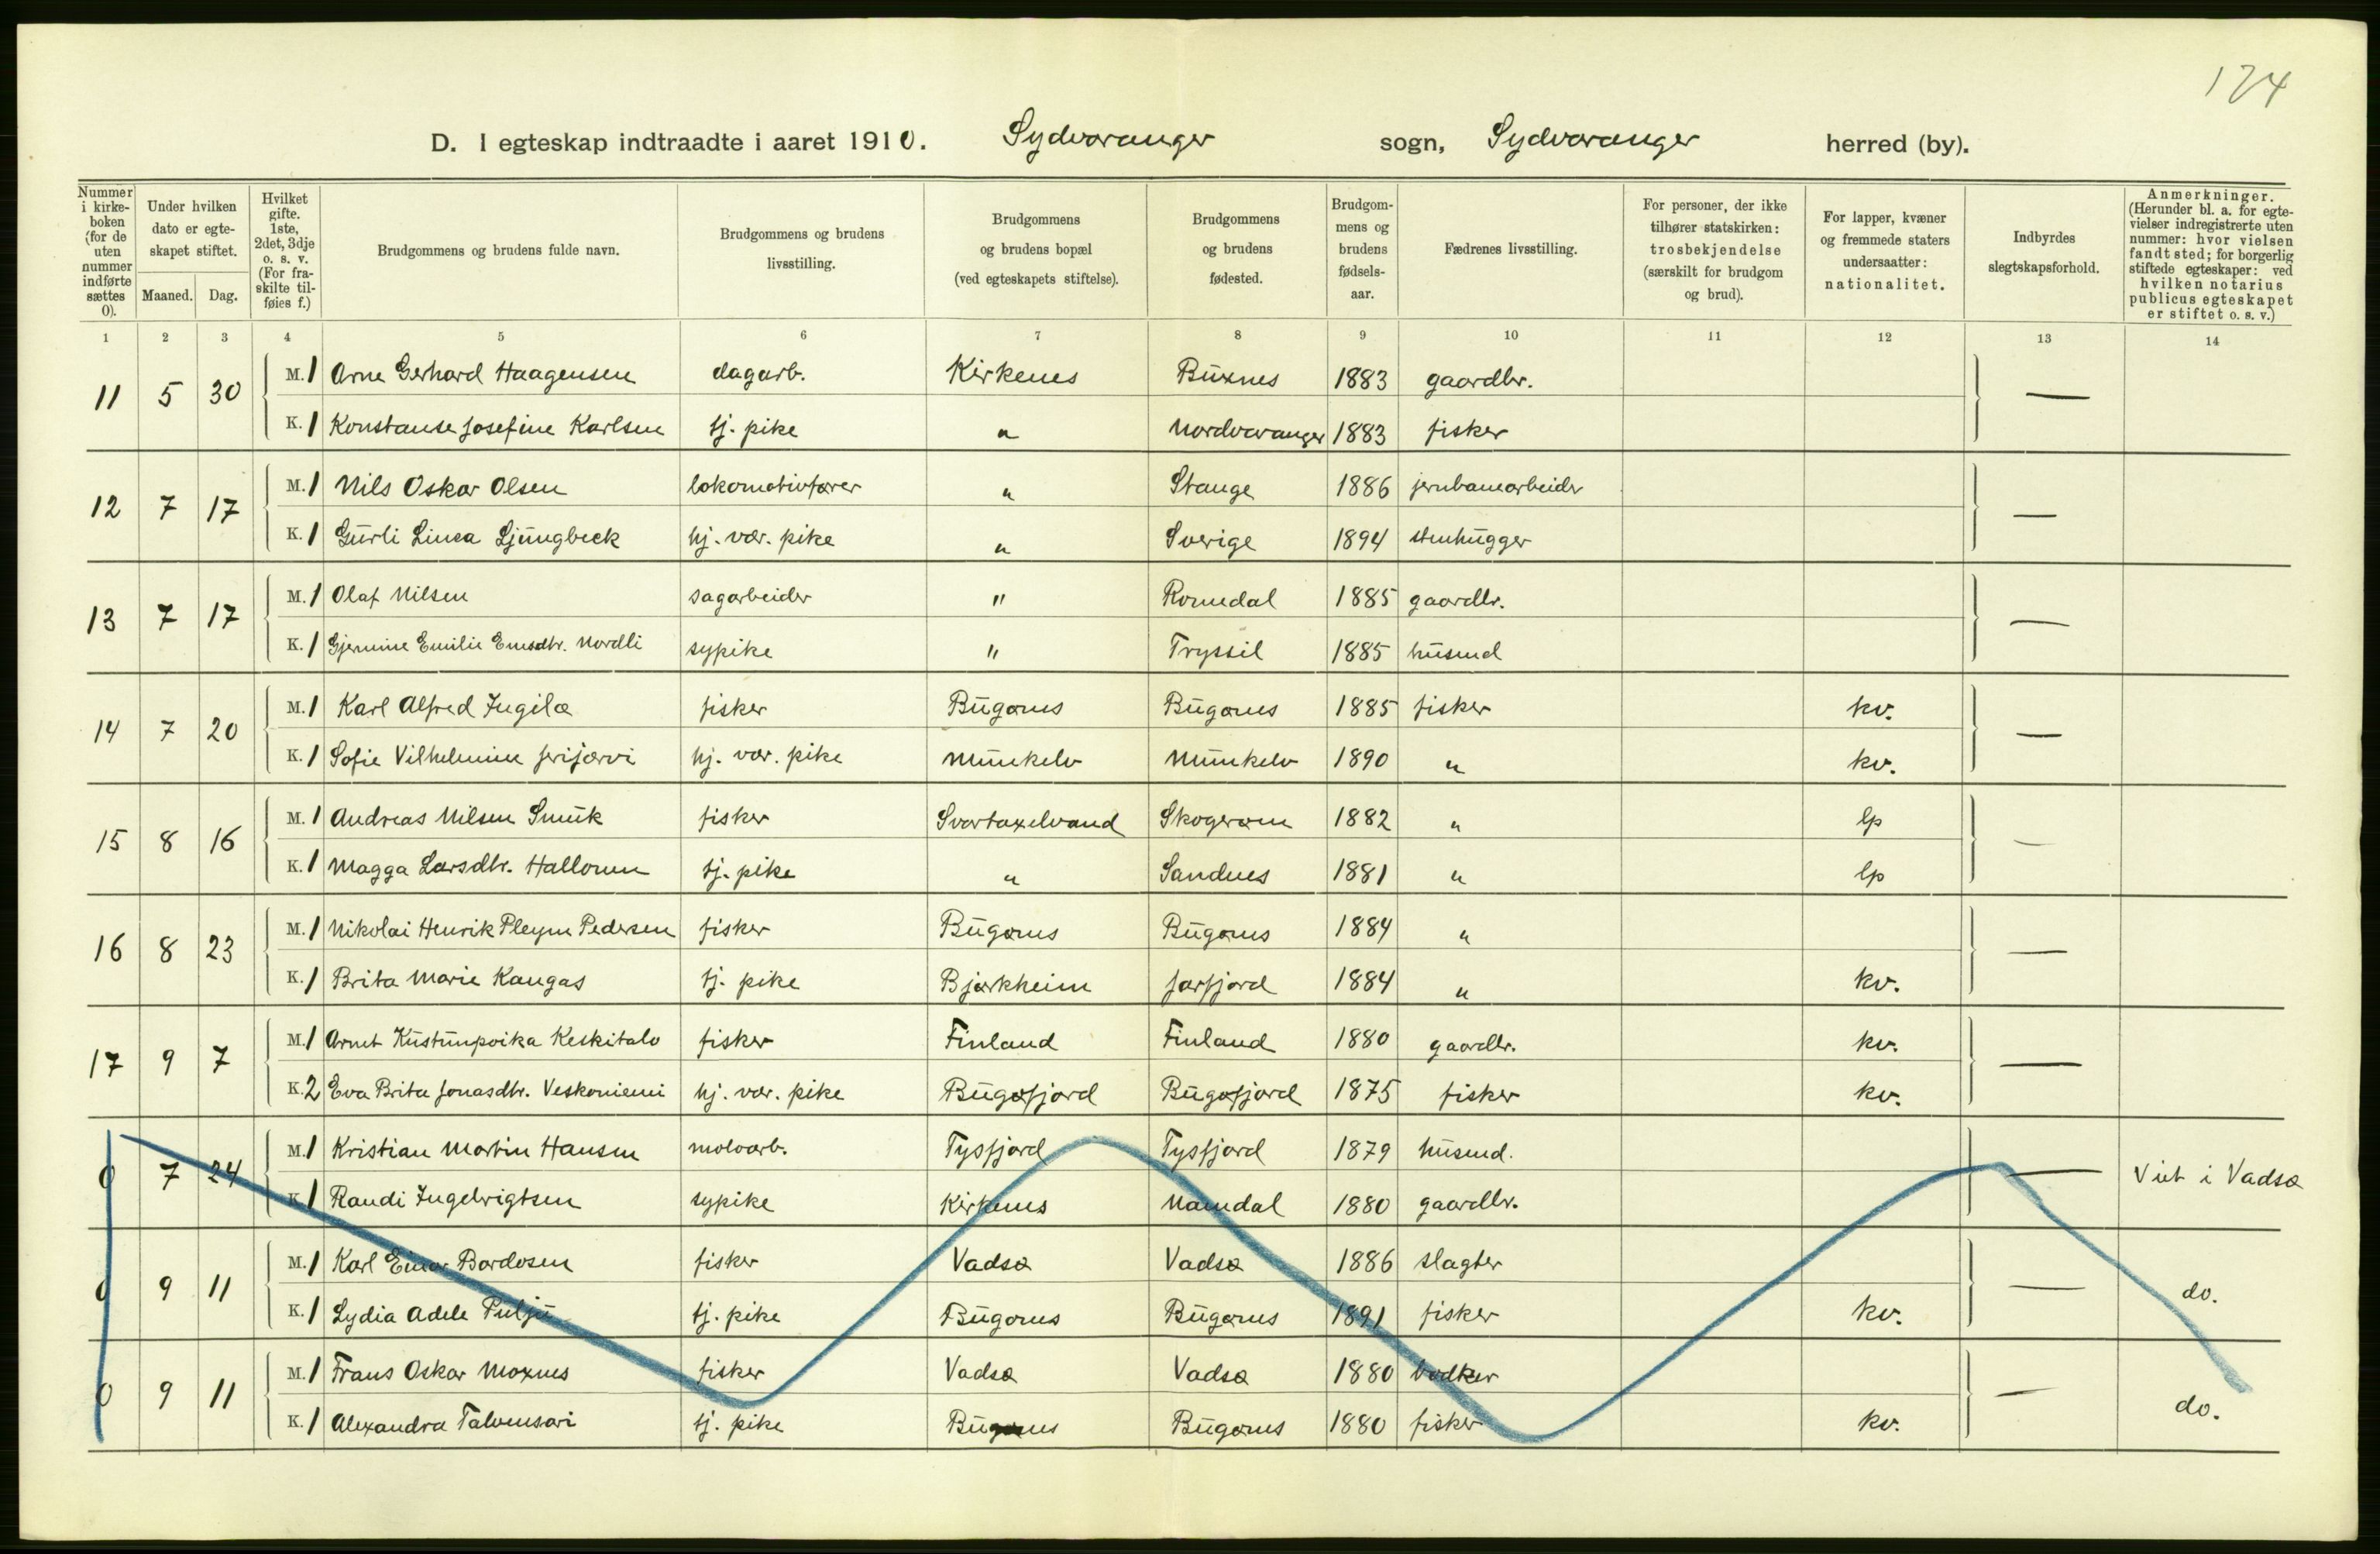 174
D. I egteskap indtraadte i aaret 1910. Sydvaranger sogn, Sydvaranger herred (by).
Nummer i kirkeboken (for de uten nummer indførte sættes 0).
Under hvilken dato er egteskapet stiftet.
Maaned. Dag.
Hvilket gifte. 1ste, 2det, 3dje o. s. v. (For fraskilte tilføies f.)
Brudgommens og brudens fulde navn.
Brudgommens og brudens livsstilling.
Brudgommens og brudens bopæl (ved egteskapets stiftelse).
Brudgommens og brudens fødested.
Brudgommens og brudens fødselsaar.
Fædrenes livsstilling.
For personer, der ikke tilhører statskirken: trosbekjendelse (særskilt for brudgom og brud).
For lapper, kvæner og fremmede staters undersaatter: nationalitet.
Indbyrdes slegtskapsforhold.
Anmerkninger. (Herunder bl. a. for egtevielser indregistrerte uten nummer: hvor vielsen fandt sted; for borgerlig stiftede egteskaper: ved hvilken notarius publicus egteskapet er stiftet o. s. v.)
1 2 3 4 5 6 7 8 9 10 11 12 13 14
11 5 30 M. 1 Arne Gerhard Haagensen dagarb. Kirkenes Buxnes 1883 gaardbr. —
K. 1 Konstanse Josefine Karlsen tj. pike " Nordvaranger 1883 fisker
12 7 17 M. 1 Nils Oskar Olsen lokomotivfører " Stange 1886 jernbanearbeider —
K. 1 Gurli Linea Ljungbeck hj. vær. pike " Sverige 1894 stenhugger
13 7 17 M. 1 Olaf Nilsen sagarbeider " Romedal 1885 gaardbr. —
K. 1 Gjermine Emilie Emsdtr. Nordli sypike " Tryssil 1885 husmd
14 7 20 M. 1 Karl Alfred Ingilæ fisker Bugønes Bugønes 1885 fisker kv. —
K. 1 Sofie Vilhelmine Jerijærvi hj. vær. pike Munkelv Munkelv 1890 " kv.
15 8 16 M. 1 Andreas Nilsen Smuk fisker Svartaxelvand Skogerøen 1882 " lp —
K. 1 Magga Larsdtr. Hallonen tj. pike " Sandnes 1881 " lp
16 8 23 M. 1 Nikolai Henrik Pleym Pedersen fisker Bugønes Bugønes 1884 " —
K. 1 Brita Marie Kangas tj. pike Bjørkheim Jarfjord 1884 " kv.
17 9 7 M. 1 Arnet Kustunpoika Keskitalo fisker Finland Finland 1880 gaardbr. kv. —
K. 2 Eva Brita Jonasdtr. Veskoniemi hj. vær. pike Bugøfjord Bugøfjord 1875 fisker kv.
0 7 24 M. 1 Kristian Martin Hansen moloarb. Tysfjord Tysfjord 1879 husmd. — Viet i Vadsø
K. 1 Randi Ingebrigtsen sypike Kirkenes Namdal 1880 gaardbr.
0 9 11 M. 1 Karl Einar Bardosen fisker Vadsø Vadsø 1886 slagter — do.
K. 1 Lydia Adele Pulju tj. pike Bugønes Bugønes 1891 fisker kv.
0 9 11 M. 1 Frans Oskar Moxnes fisker Vadsø Vadsø 1880 bødker — do.
K. 1 Alexandra Talvensari tj. pike Bugønes Bugønes 1880 fisker kv.